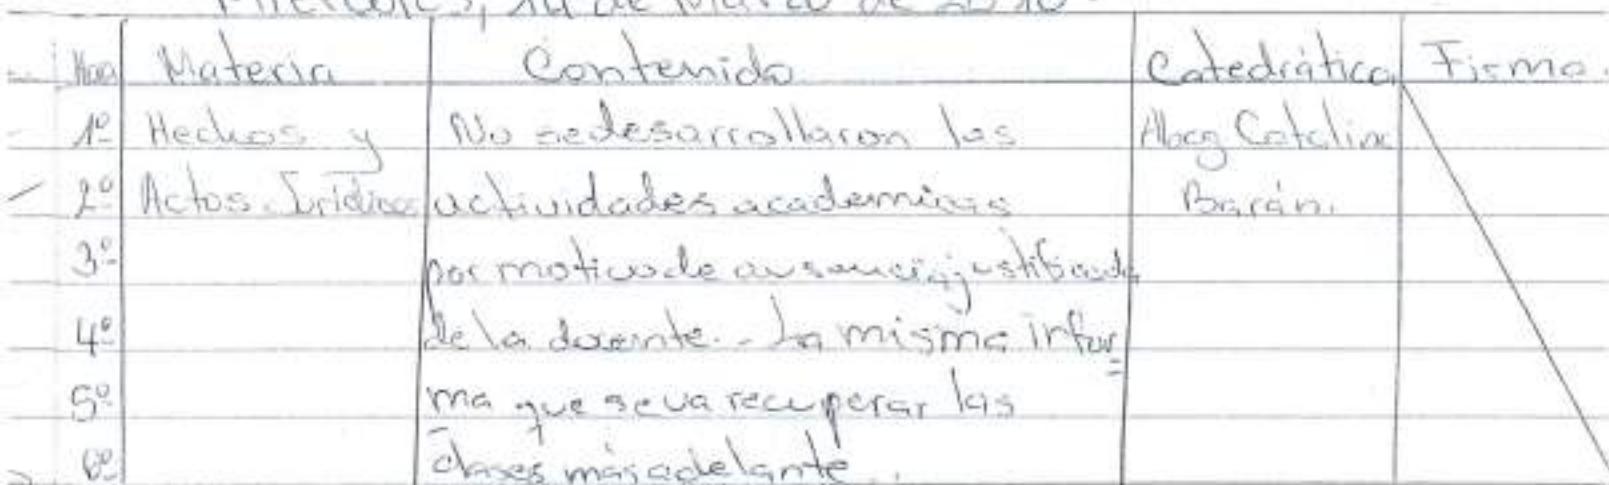 Miércoles, 14 de Marzo de 2010
Hora Materia Contenido Catedrática Firma.
1º Hechos y No se desarrollaron las Abog Catalina
2º Actos Jurídicos actividades academicas Barán.
3º por motivo de ausencia justificada
4º de la docente.- La misma infor
5º ma que se va recuperar las
6º clases más adelante.